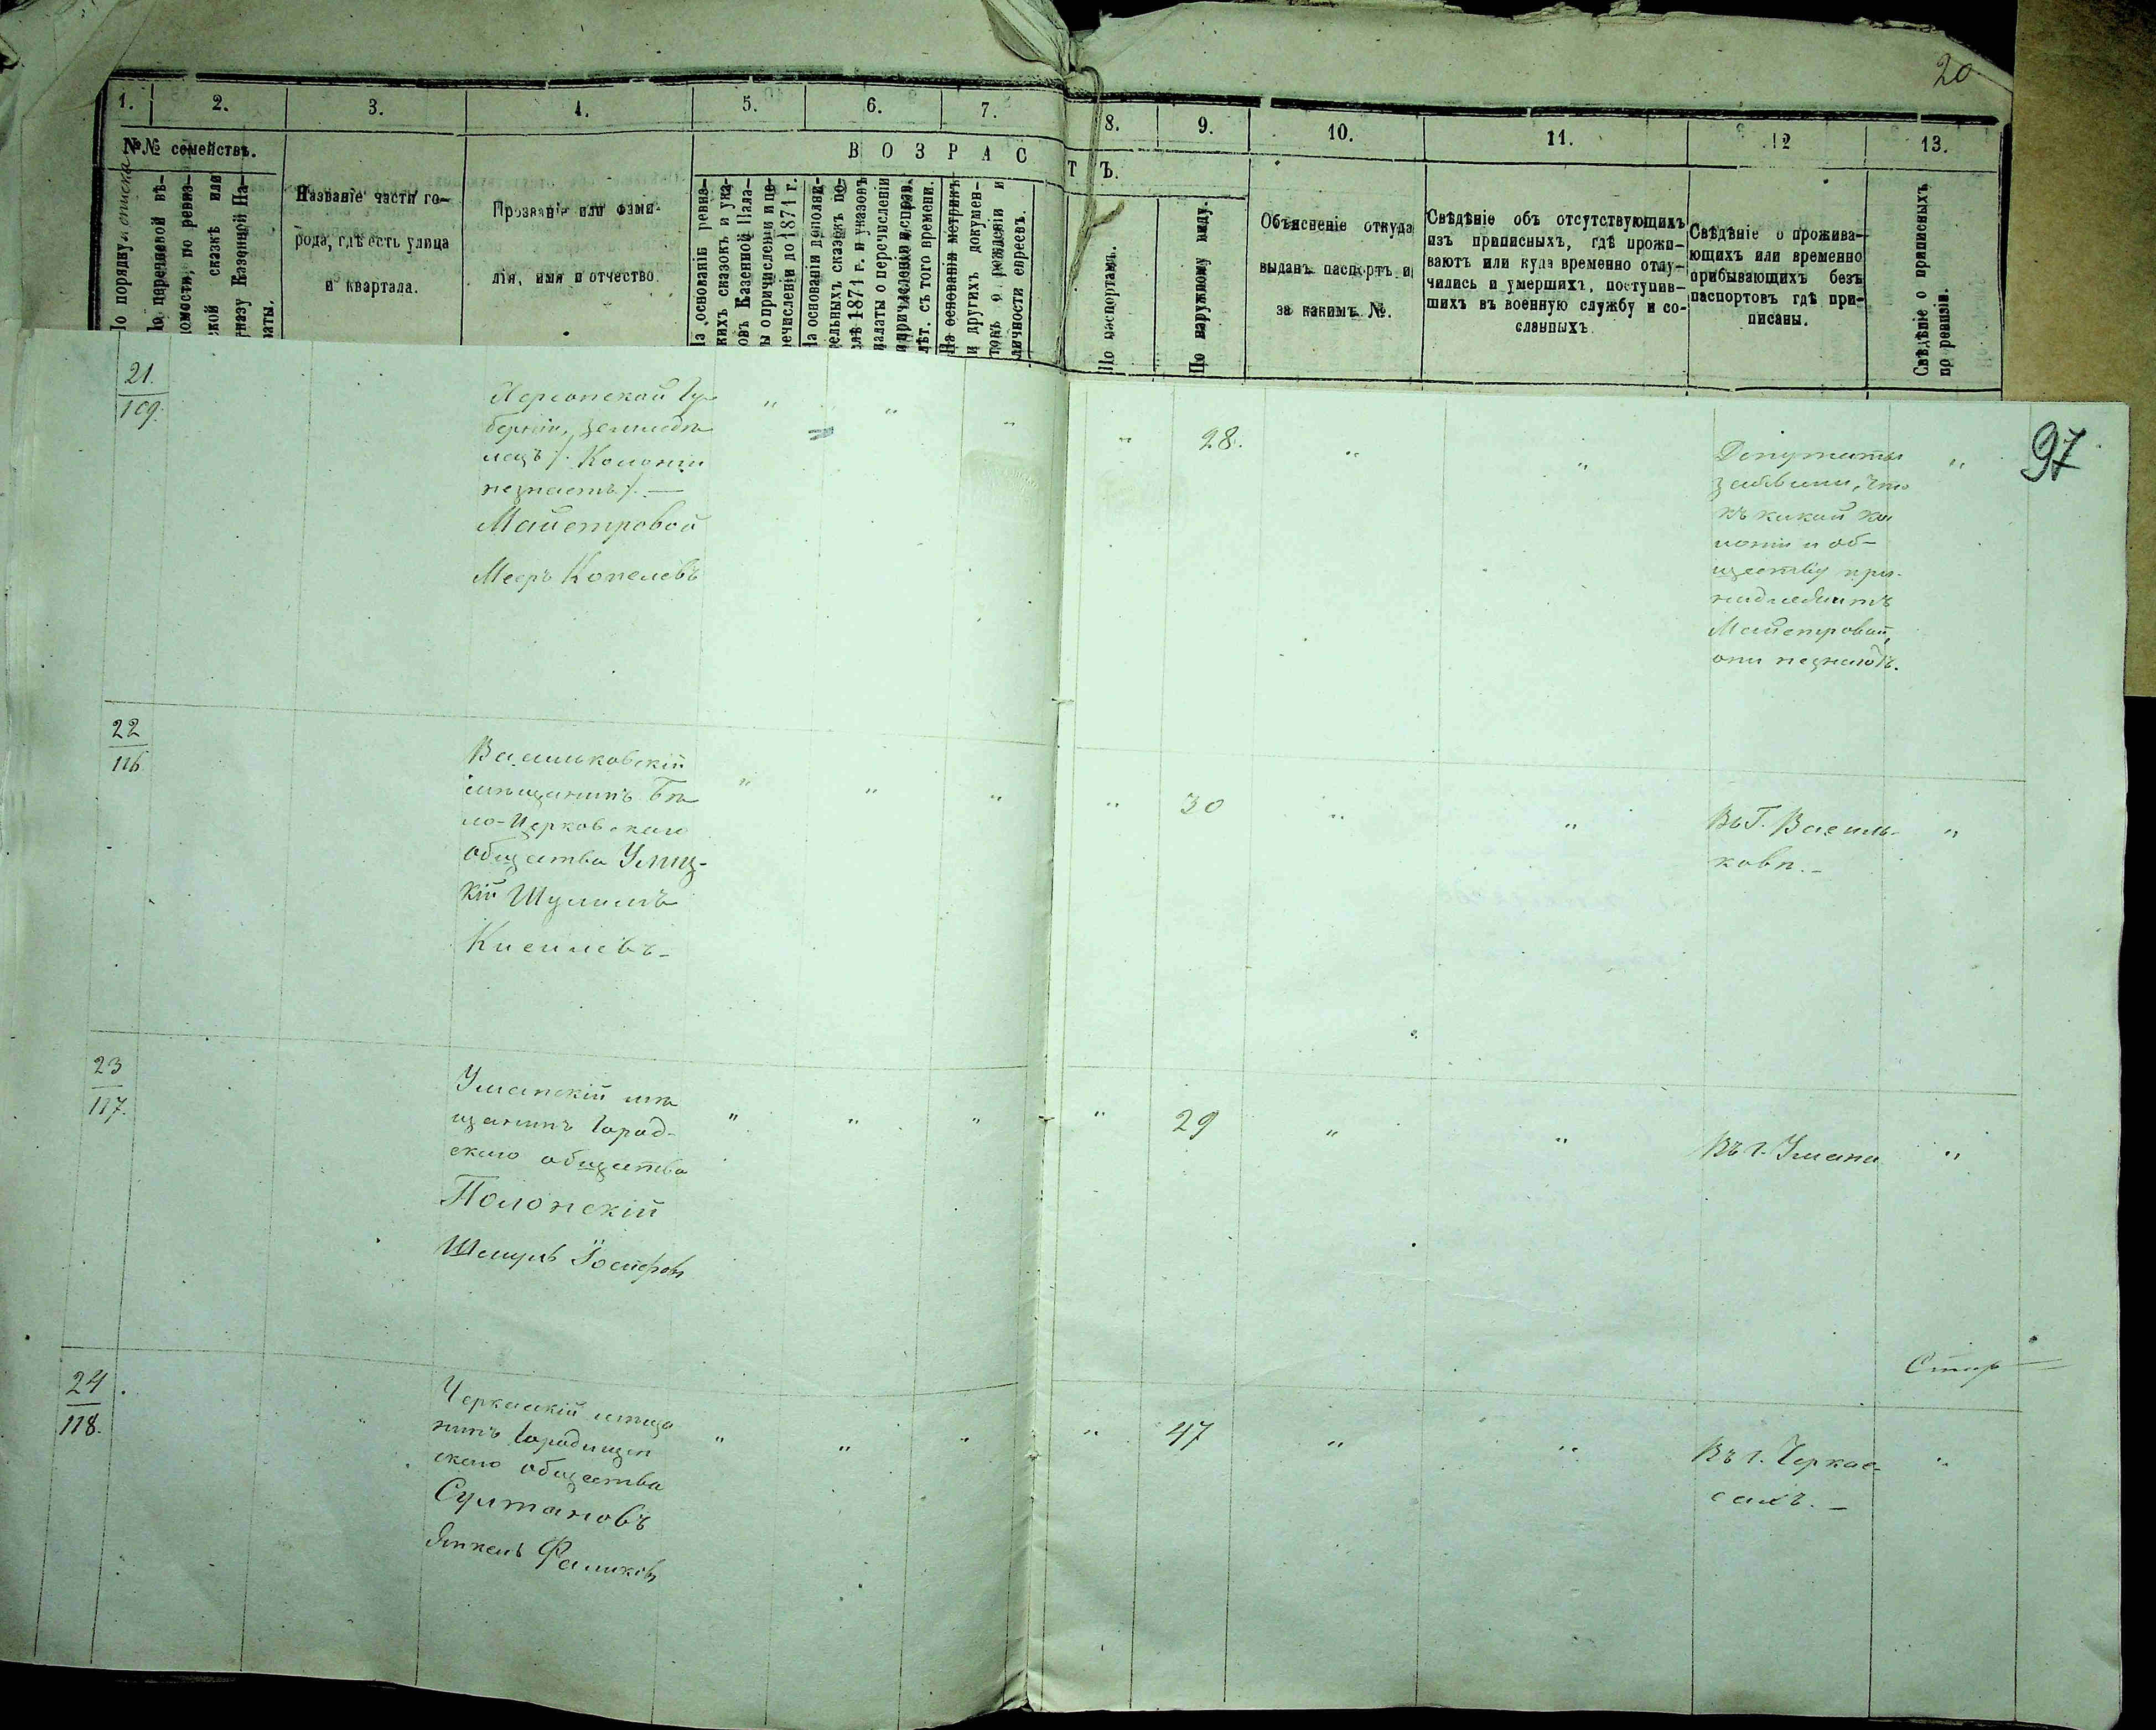 20
1. 2. 3. 4. 5. 6. 7. 8. 9. 10. 11. 12 13.
№№ семействъ.
По порядку списка
По перечневой вѣ-
домости, по ревиз-
ской сказкѣ или
указу Казенной Па-
латы.
Названіе части го-
рода, гдѣ есть улица
и квартала.
Прозваніе или фами-
лія, имя и отчество
ВОЗРАСТЪ.
На основаніи ревиз-
скихъ сказокъ и ука-
зовъ Казенной Пала-
ты о причисленіи и пе-
речисленіи до 1871 г.
На основаніи дополни-
тельныхъ сказокъ по-
слѣ 1871 г. и указовъ
палаты о перечисленіи
и причисленіи и исправ.
лѣт. съ того времени.
На основаніи метрикъ
и другихъ докумен-
товъ о рожденіи и
личности евреевъ.
По паспортамъ.
По наружному виду.
Объясненіе откуда
выданъ паспортъ и
за какимъ №.
Свѣдѣніе объ отсутствующихъ
изъ приписныхъ, гдѣ прожи-
ваютъ или куда временно отлу-
чились и умершихъ, поступив-
шихъ въ военную службу и со-
сланныхъ
Свѣдѣніе о прожива-
ющихъ или временно
прибывающихъ безъ
паспортовъ гдѣ при-
писаны.
Свѣдѣніе о приписныхъ
по ревизіи.
97
21.
109.
Херсонской Гу-
берніи, земледѣ
лецъ /. Колоніи
незнаетъ /. —
Майстровой
Мееръ Копелевъ
" " " " 28. " "
Депутаты
заявили, что
къ какой ко
лоніи и об-
ществу при-
надлежитъ
Майстровой,
они незнаютъ.
"
22
116
Васильковскій
мѣщанинъ Бѣ
ло-Церковскаго
общества Улиц-
кій Шулимъ
Киселевъ-
" " " " 30 " "
Въ Г. Василь-
ковѣ. -
"
23
117.
Уманскій мѣ
щанинъ Город-
скаго общества
Полонскій
Шмуль Іосифовъ
" " " " 29 " "
Въ г. Умани
"
24
118.
Черкасскій мѣща
нинъ Городищен
скаго общества
Султановъ
Янкель Фаликовъ
" " " " 47 " "
Въ г. Черкас-
сахъ. -
"